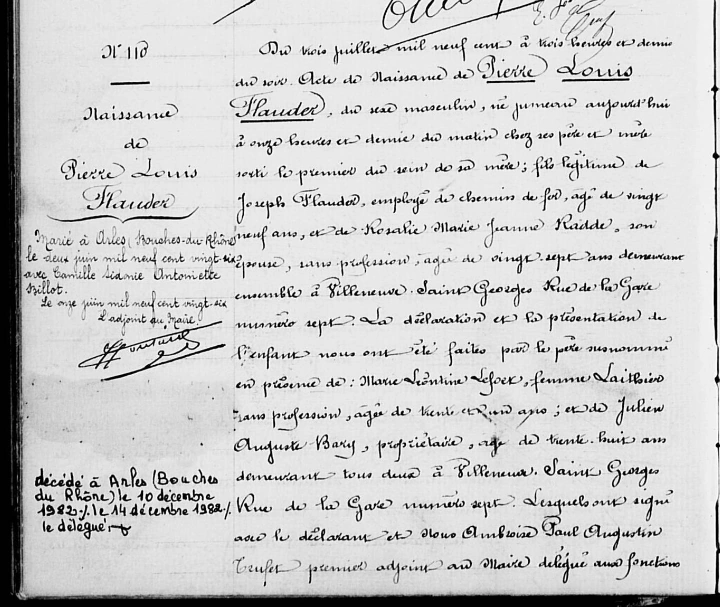 N° 110
Naissance
de
Pierre Louis
Flauder
Marié à Arles (Bouches-du-Rhône)
le deux juin mil neuf cent vingt-six
avec Camille Sidonie Antoinette
Billot.
Le onze juin mil neuf cent vingt-six
L'adjoint au Maire.
décédé à Arles (Bouches
du Rhône) le 10 décembre
1982 ·/. le 14 décembre 1982 ·/.
le délégué
Du trois juillet mil neuf cent à trois heures et demie
du soir. Acte de Naissance de Pierre Louis
Flauder, du sexe masculin, né jumeau aujourd'hui
à onze heures et demie du matin chez ses père et mère
sorti le premier du sein de sa mère; fils légitime de
Joseph Flauder, employé de chemins de fer, âgé de vingt
neuf ans, et de Rosalie Marie Jeanne Radde, son
épouse, sans profession, âgée de vingt-sept ans demeurant
ensemble à Villeneuve-Saint Georges Rue de la Gare
numéro sept. La déclaration et la présentation de
l'enfant nous ont été faites par le père susnommé
en présence de: Marie Léontine, femme
sans profession, âgée de trente et un ans; et de Julien
Auguste Bary, propriétaire, âgé de trente-huit ans
demeurant tous deux à Villeneuve-Saint Georges
Rue de la Gare numéro sept. Lesquels ont signé
avec le déclarant et Nous Ambroise Paul Augustin
premier adjoint au Maire délégué aux fonctions